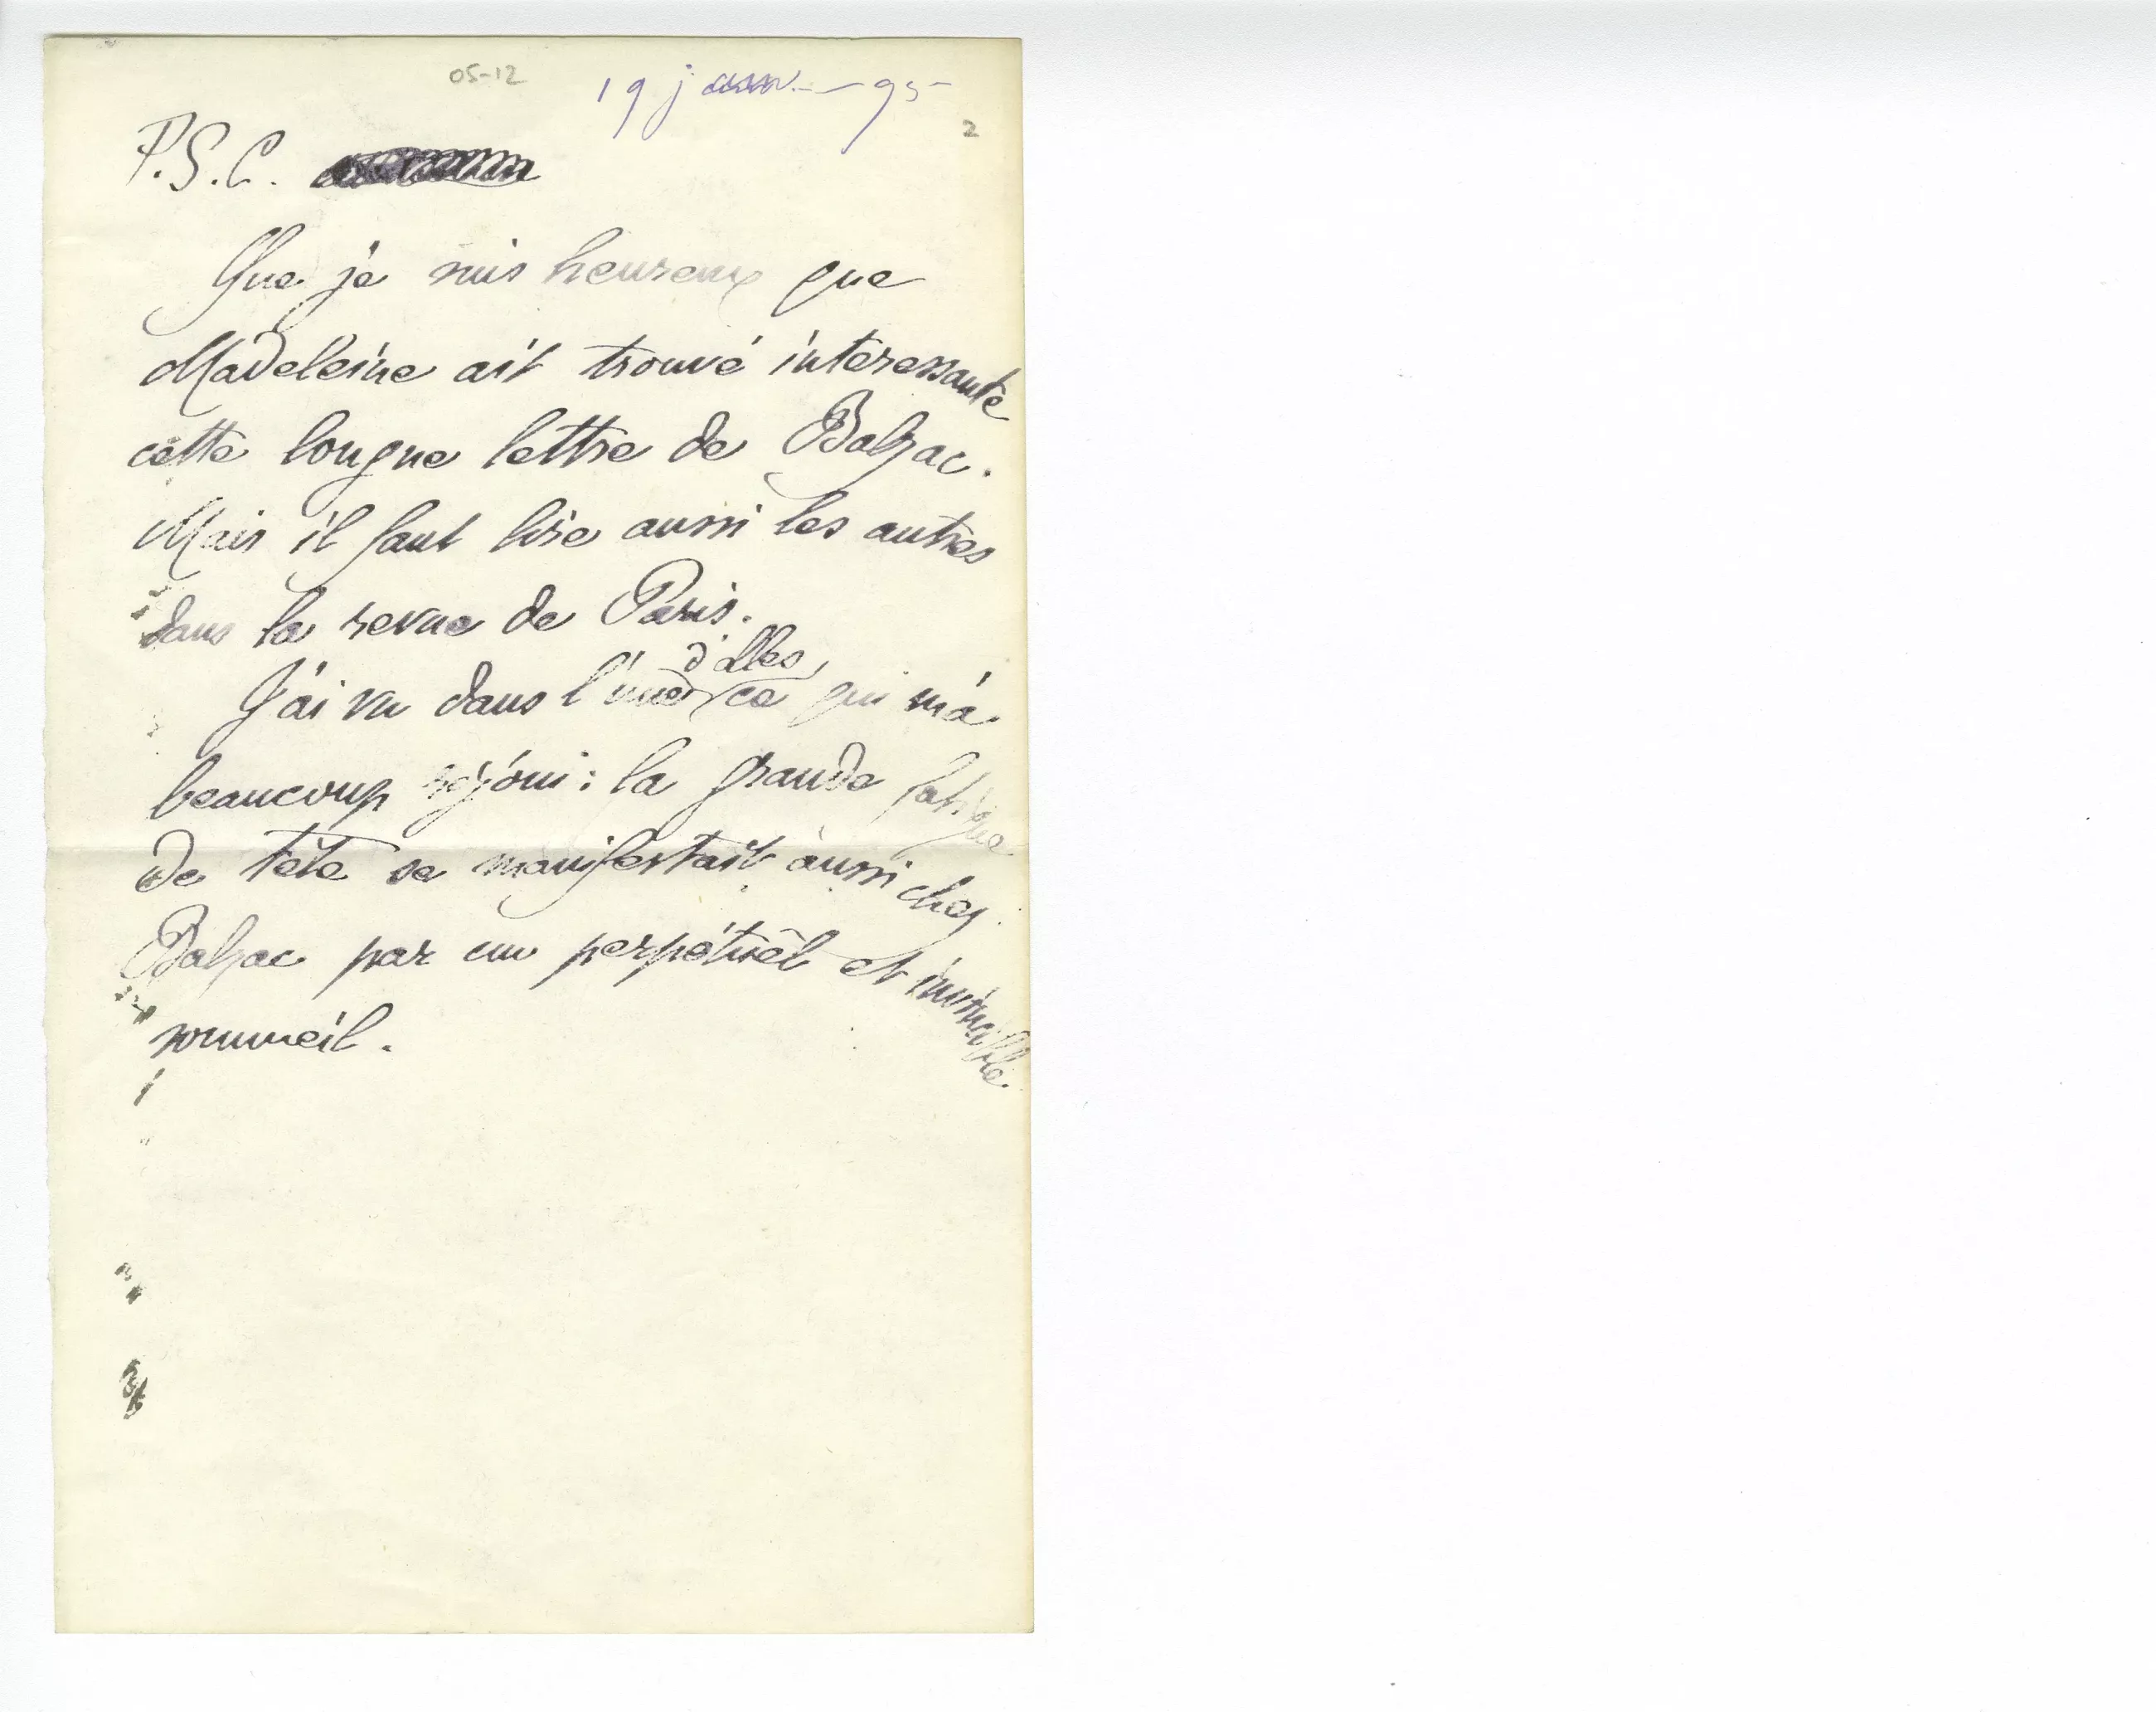 05-12
19 janv. – 95
2
P.S.C.
Que je suis heureux que
Madeleine ait trouvé intéressante
cette longue lettre de Balzac.
Mais il faut lire aussi les autres
dans la revue de Paris.
d'elles
J'ai vu dans l'une ce qui m'a
beaucoup réjoui : la grande fatigue
de tête se manifestait aussi chez
Balzac par un perpétuel et invincible
sommeil.